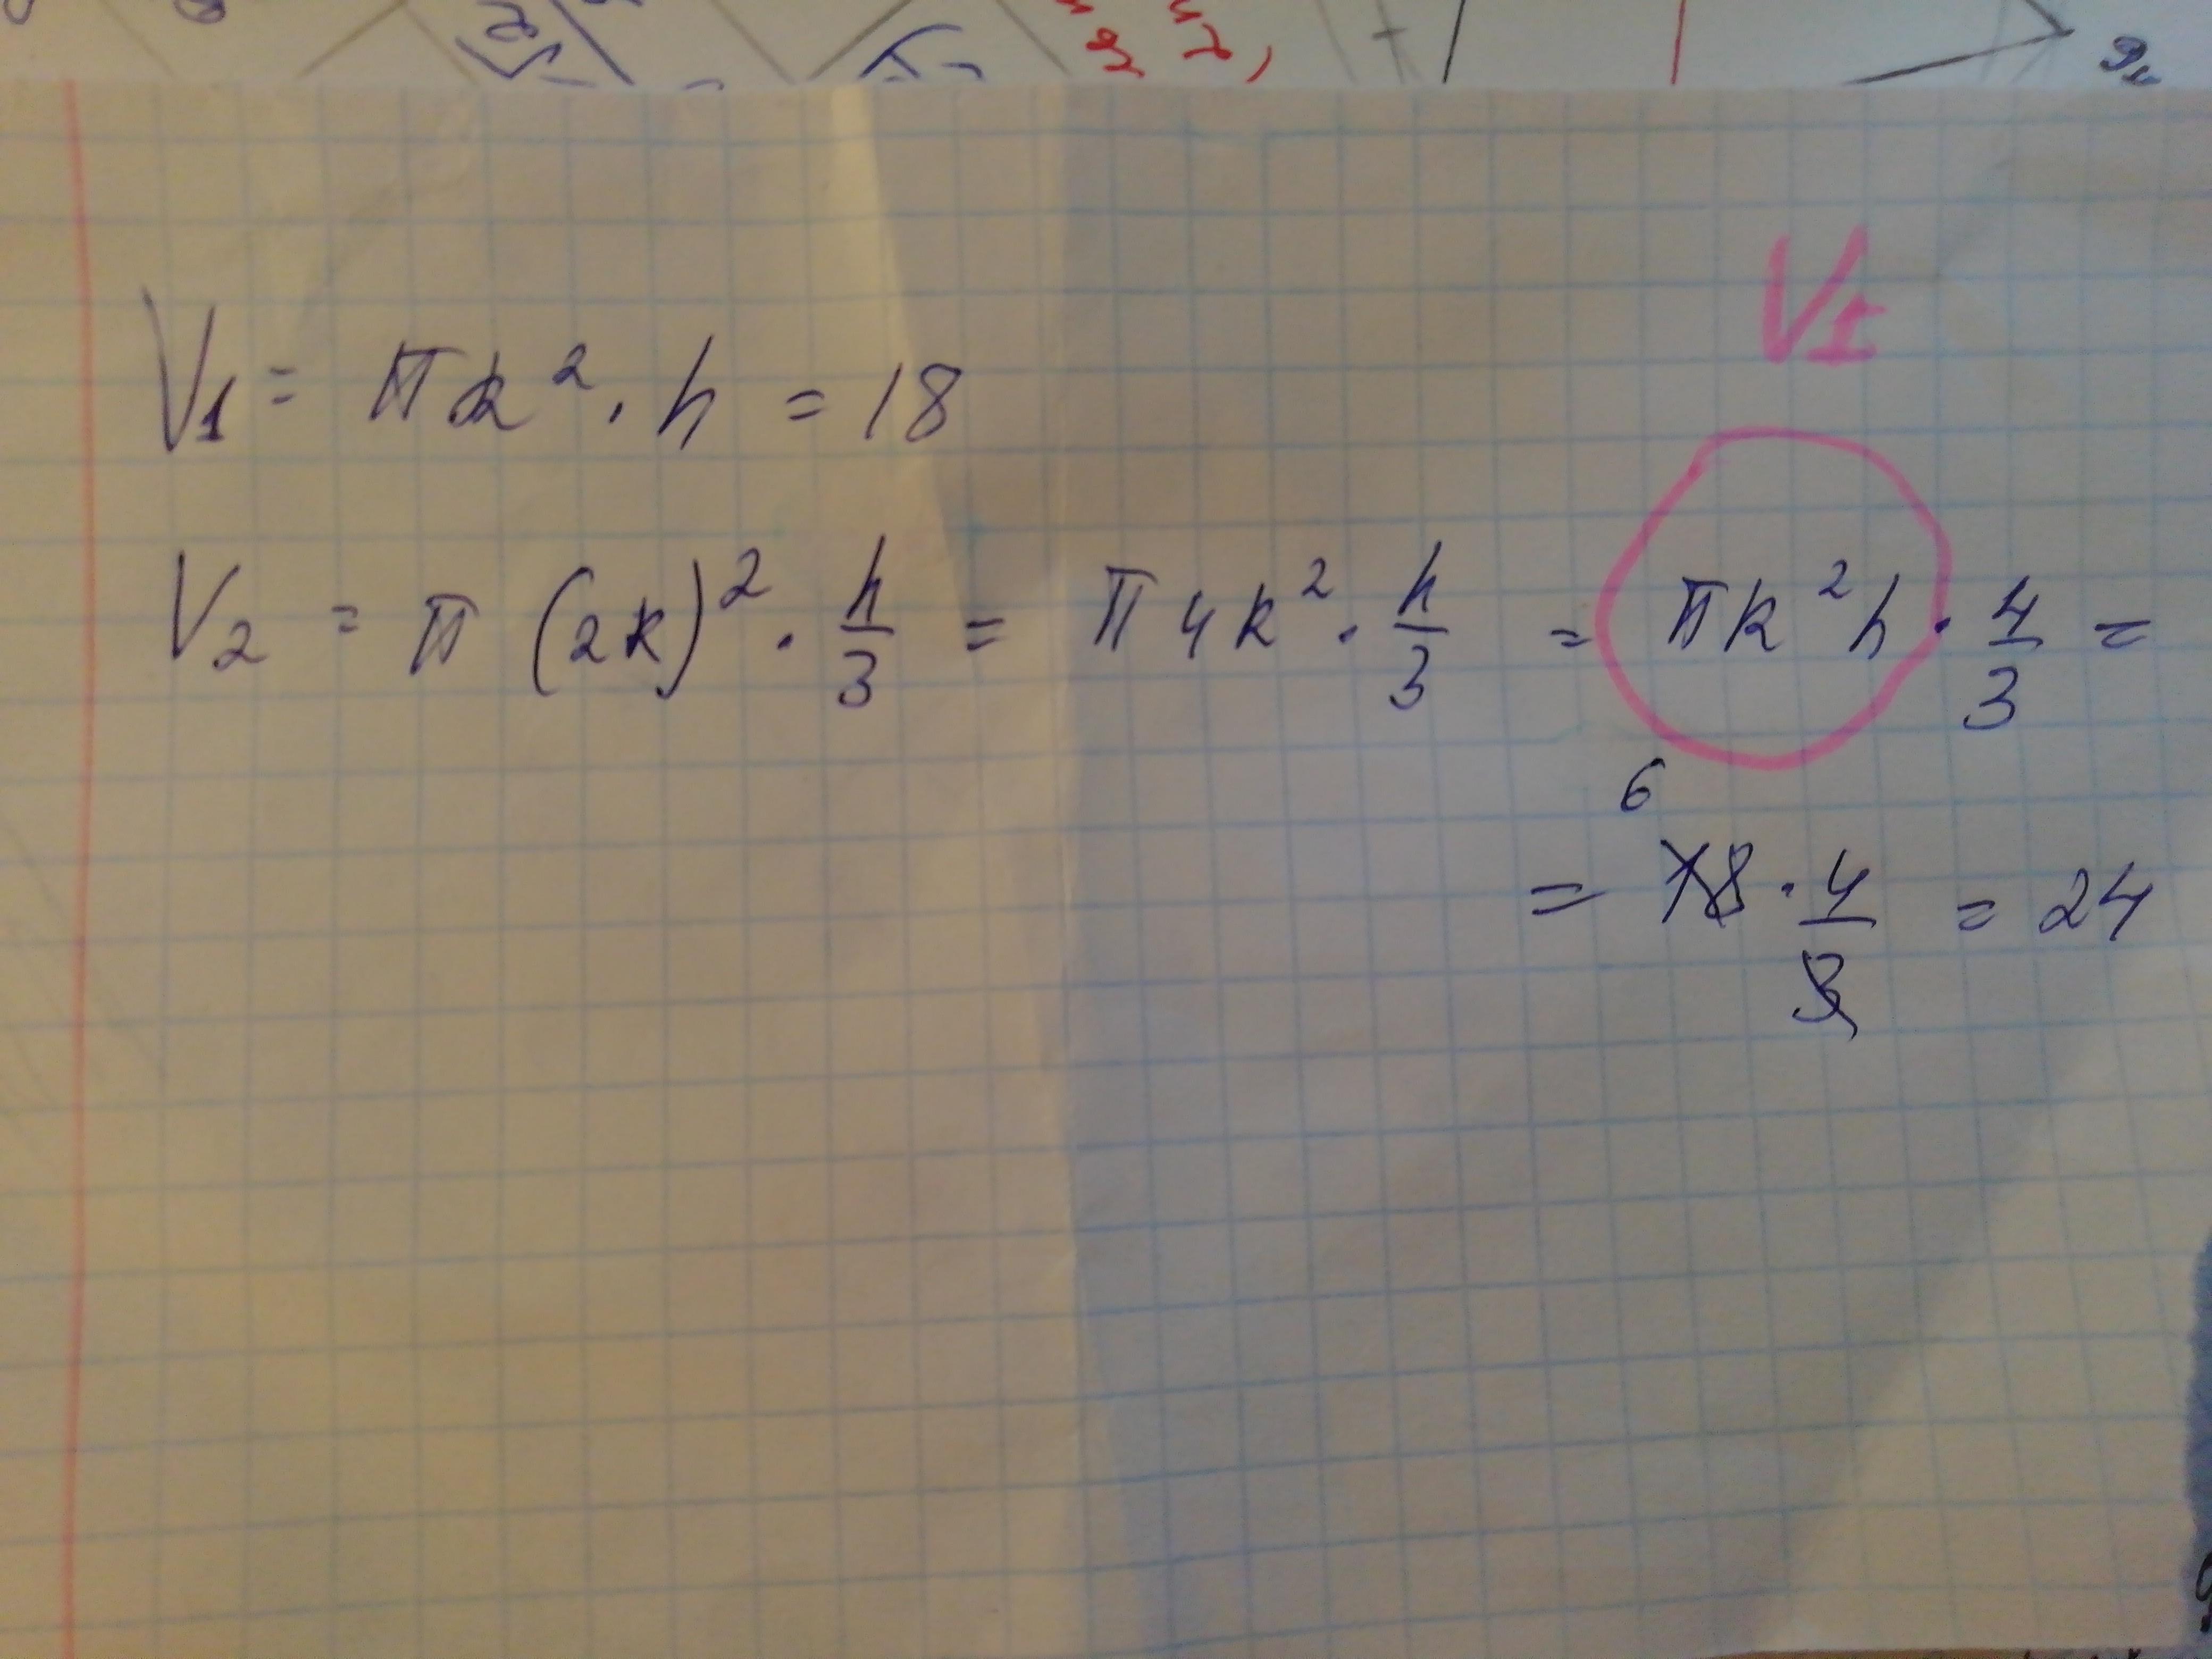 V₁
V₁ = πR² · h = 18
V₂ = π (2R)² · h/3 = π4R² · h/3 = πR²h · 4/3 =
6
= 18 · 4/3 = 24